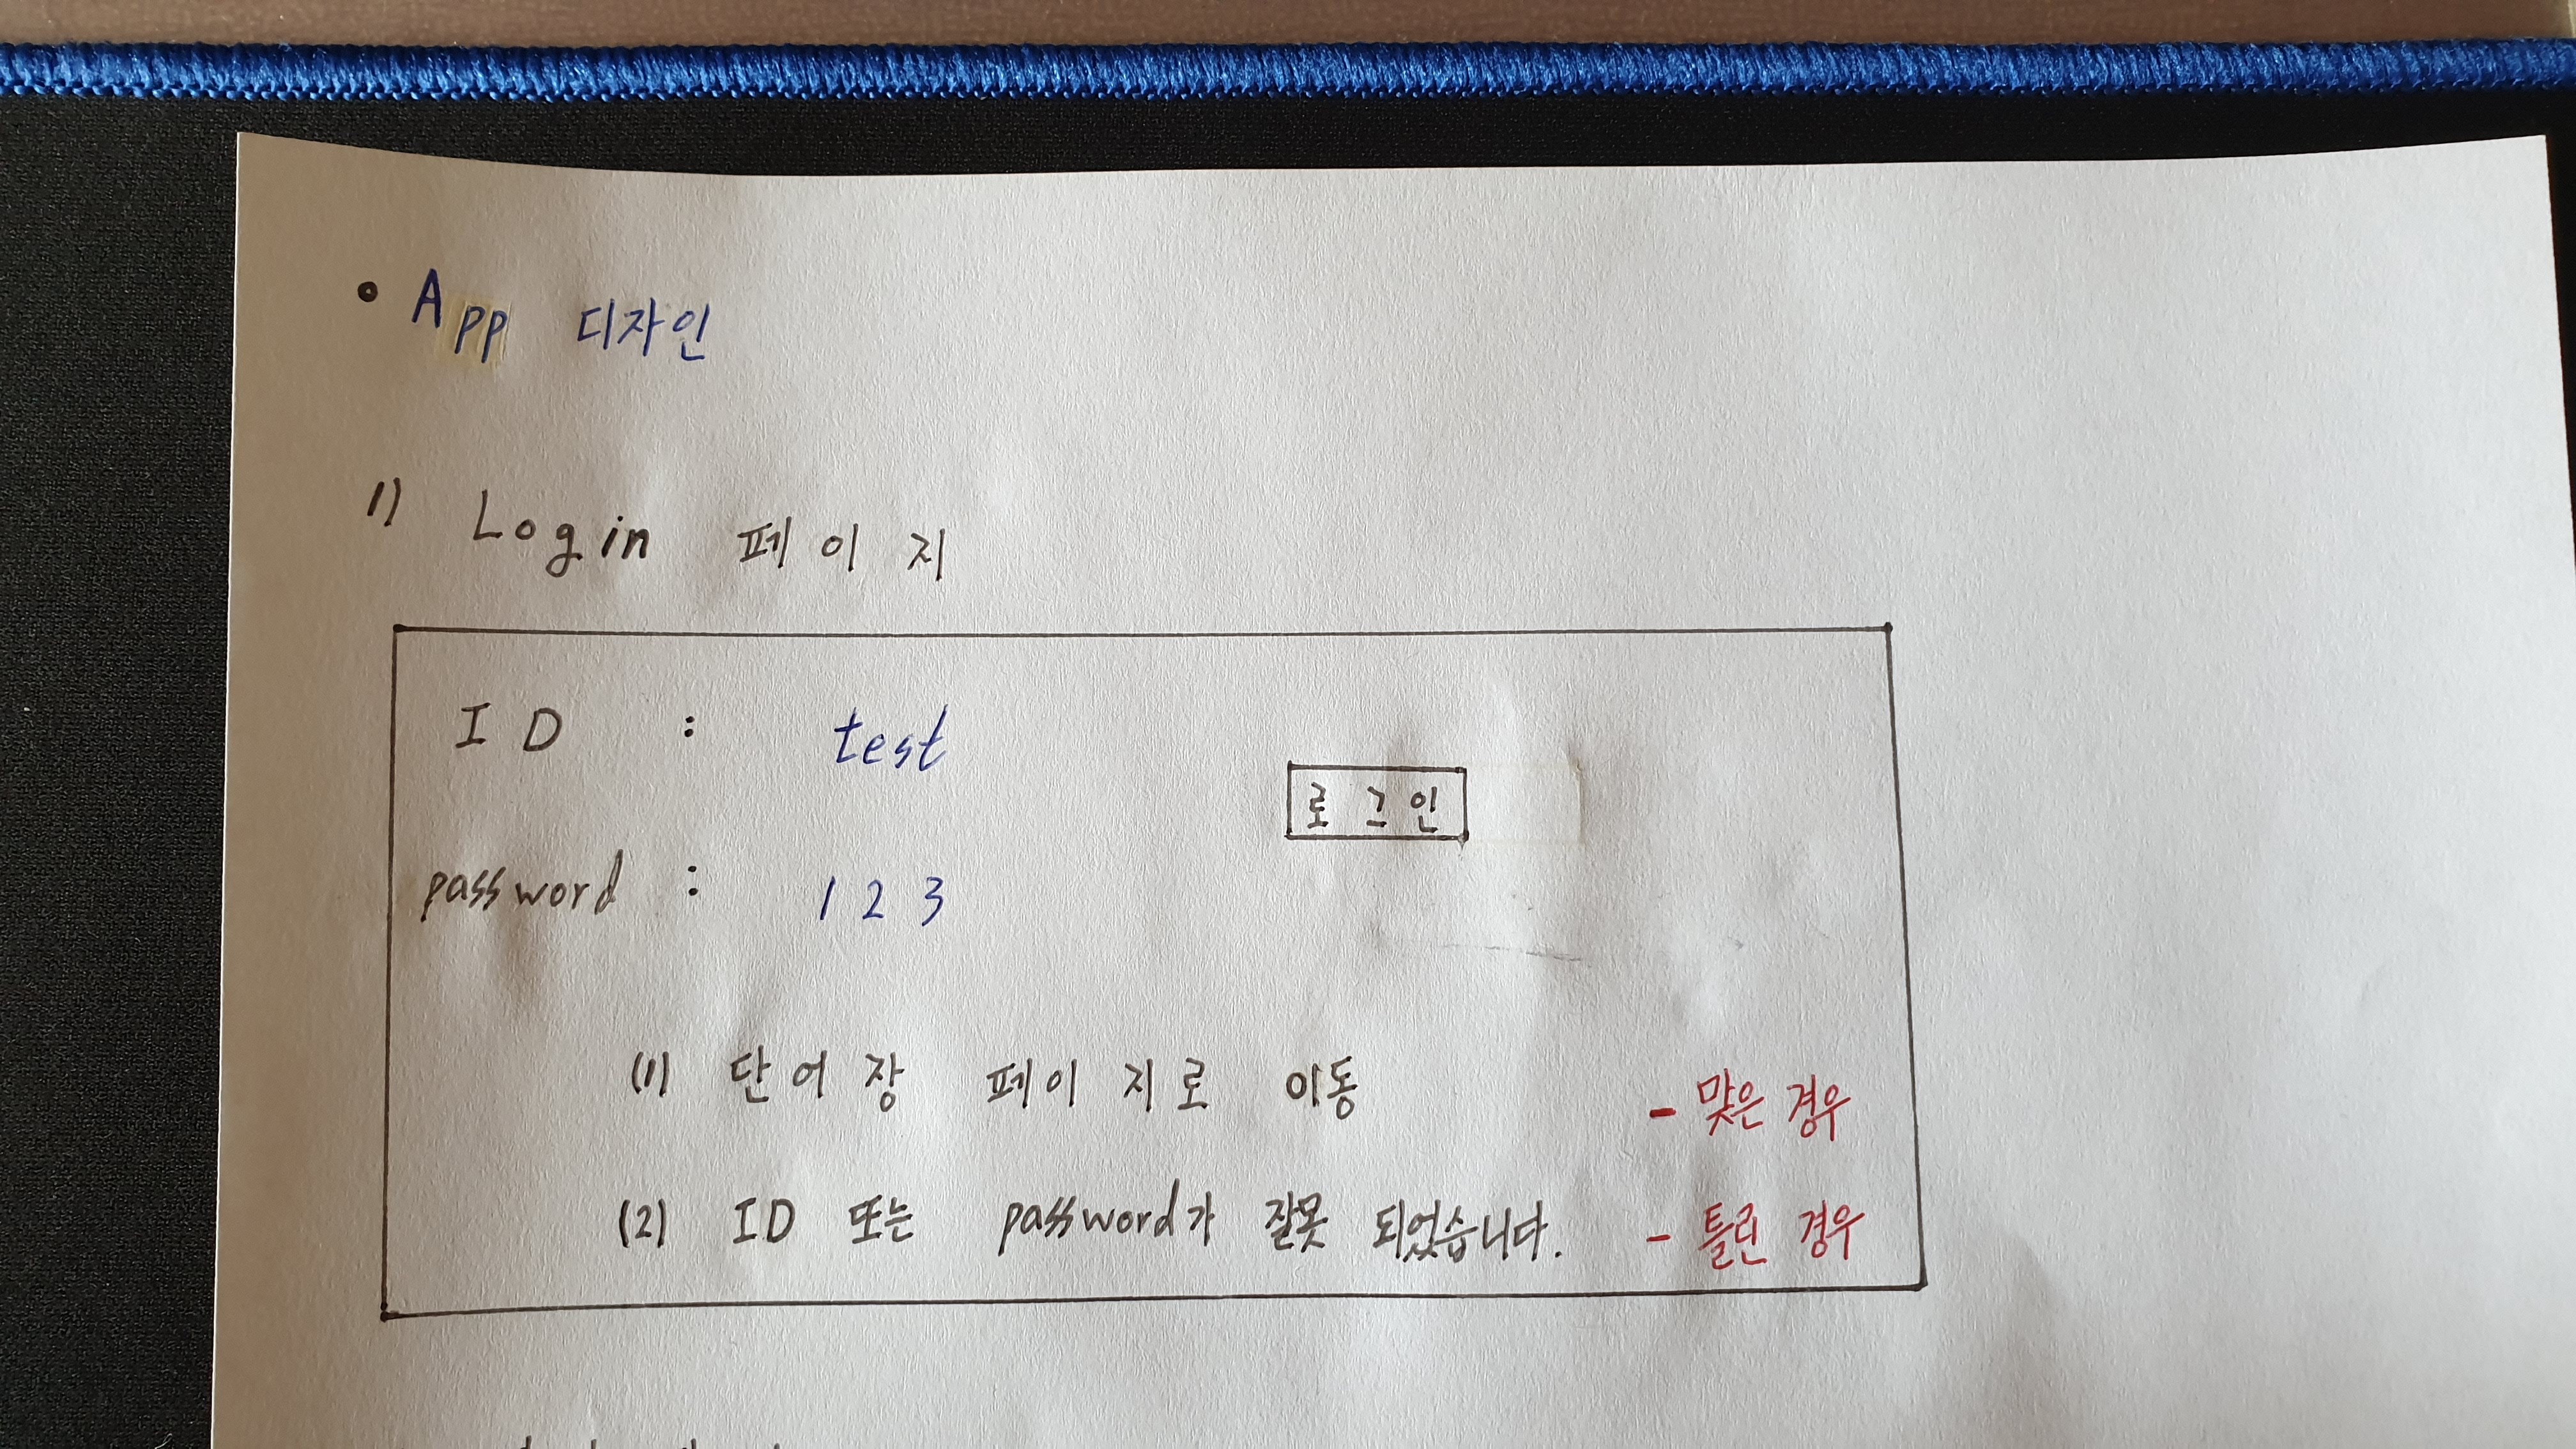 • App 디자인
1) Login 페이지
ID : test
로그인
password : 123
(1) 단어장 페이지로 이동 - 맞은 경우
(2) ID 또는 password가 잘못 되었습니다. - 틀린 경우